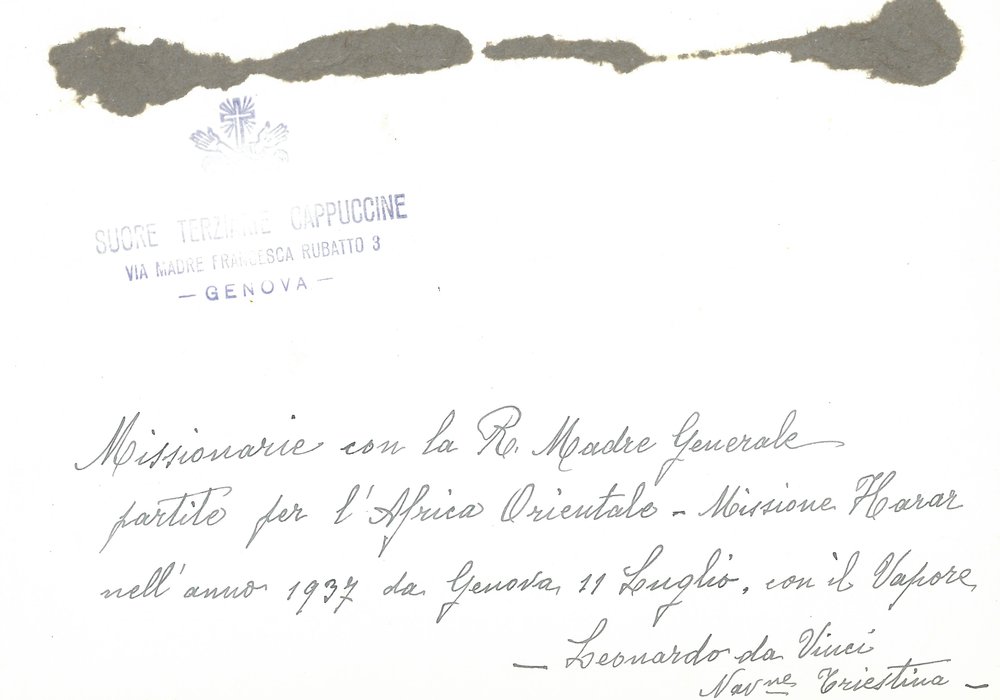 SUORE TERZIARIE CAPPUCCINE
VIA MADRE FRANCESCA RUBATTO 3
— GENOVA —
Missionarie con la R. Madre Generale
partite per l'Africa Orientale - Missione Harar
nell'anno 1937 da Genova 11 Luglio, con il Vapore
— Leonardo da Vinci
Navne Triestina —